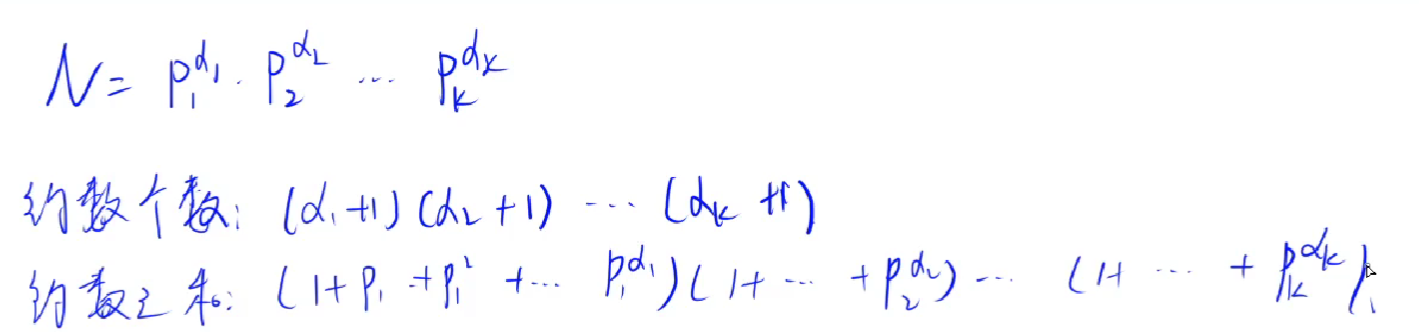 N = p₁^α₁ · p₂^α₂ ··· pₖ^αₖ
约数个数: (α₁+1)(α₂+1) ··· (αₖ+1)
约数之和: (1+p₁+p₁²+··· p₁^α₁)(1+···+p₂^α₂)··· (1+ ··· + pₖ^αₖ)